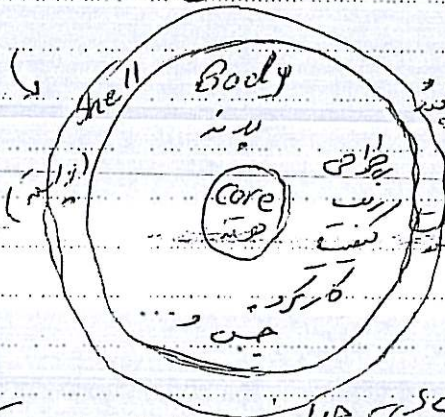 Shell
Body
بدنه
core
هسته
(پوسته)
طراحی
کیفیت
کارکرد
جنس و...